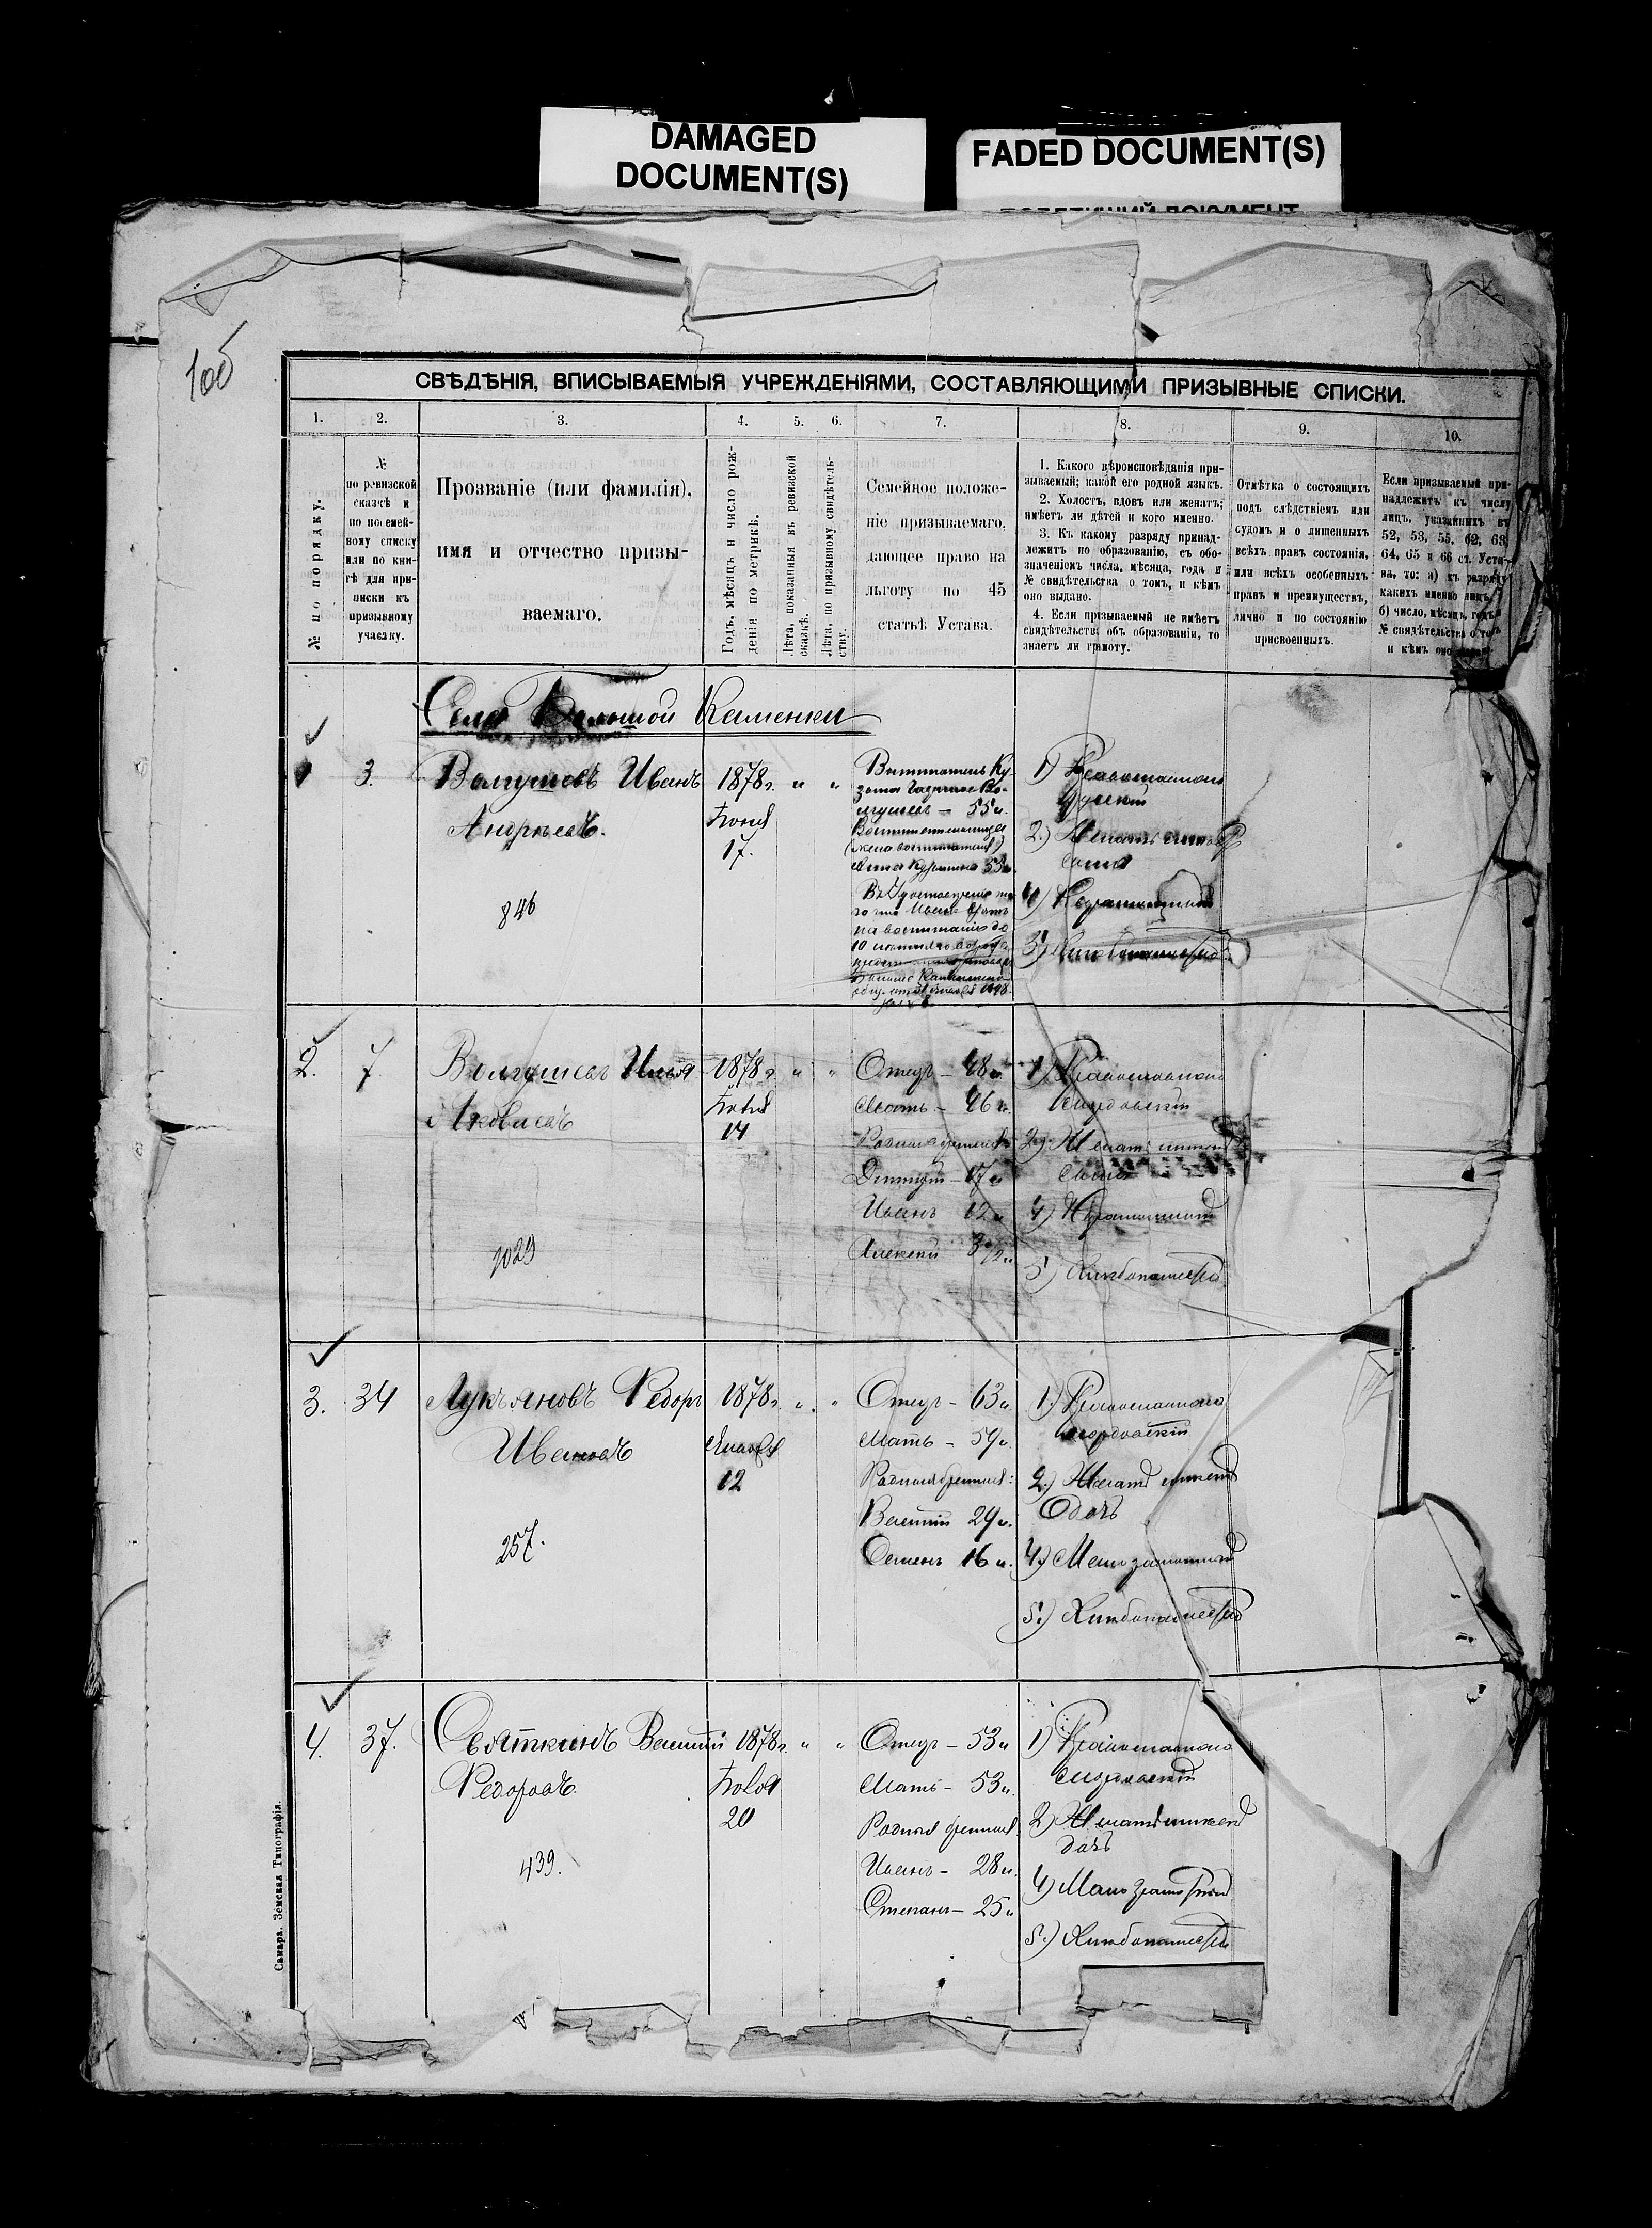 DAMAGED
DOCUMENT(S)
FADED DOCUMENT(S)
106
СВѢДѢНІЯ, ВПИСЫВАЕМЫЯ УЧРЕЖДЕНІЯМИ, СОСТАВЛЯЮЩИМИ ПРИЗЫВНЫЕ СПИСКИ.
1. 2. 3. 4. 5. 6. 7. 8. 9. 10.
№ по порядку.
№
по ревизской
сказкѣ и
по посемей-
ному списку
или по кни-
гѣ для при-
писки къ
призывному
участку.
Прозваніе (или фамилія),
имя и отчество призы-
ваемаго.
Годъ, мѣсяцъ и число рож-
денія по метрикѣ.
Лѣта, показанныя въ ревизской
сказкѣ.
Лѣта, по призывному свидѣтель-
ству.
Семейное положе-
ніе призываемаго,
дающее право на
льготу по 45
статьѣ Устава.
1. Какого вѣроисповѣданія при-
зываемый; какой его родной языкъ.
2. Холостъ, вдовъ или женатъ;
имѣетъ ли дѣтей и кого именно.
3. Къ какому разряду принад-
лежитъ по образованію, съ обо-
значеніемъ числа, мѣсяца, года и
№ свидѣтельства о томъ, и кѣмъ
оно выдано.
4. Если призываемый не имѣетъ
свидѣтельства объ образованіи, то
знаетъ ли грамоту.
Отмѣтка о состоящихъ
подъ слѣдствіемъ или
судомъ и о лишенныхъ
всѣхъ правъ состоянія,
или всѣхъ особенныхъ
правъ и преимуществъ,
лично и по состоянію
присвоенныхъ.
Если призываемый при-
надлежитъ къ числу
лицъ, указанныхъ въ
52, 53, 55, 62, 63,
64, 65 и 66 ст. Уста-
ва, то: а) къ разряду
какихъ именно лицъ,
б) число, мѣсяцъ, годъ и
№ свидѣтельства о томъ
и кѣмъ оно
Села Большой Каменки
1 3. Волгушевъ Иванъ 1878 г. " "
Андреевъ. Іюня
17.
846
55 л.
Воспитательница
(жена воспитателя)
53 л.
1) Православнаго
2.) Женатъ имѣетъ
сына
4) Неграмотный
3) Хлѣбопашество
2. 7. Волгушевъ Илья 1878 г. " "
Яковлевъ Іюня
14
1029
Отецъ – 48 л.
Мать – 46 л.
Родные братья
Дмитрій – 17 л.
Иванъ 12 л.
Алексѣй 3 1/2 л.
1) Православнаго
мордовскій
2) Женатъ имѣетъ
сына
4) Неграмотный
5) Хлѣбопашество
3. 34 Лукъяновъ Ѳедоръ 1878 г. " "
Ивановъ Января
12
257.
Отецъ – 63 л.
Мать – 59 л.
Родные братья:
Василій 29 л.
Семенъ 16 л.
1.) Православнаго
мордовскій
2.) Женатъ имѣетъ
дочь
4.) Малограмотный
5.) Хлѣбопашество
4. 37. Святкинъ Василій 1878 г. " "
Ѳедоровъ. Іюля
20
439.
Отецъ – 53 л.
Мать – 53 л.
Родные братья
Иванъ – 28 л.
Степанъ – 25 л.
1) Православнаго
мордовскій
2) Женатъ имѣетъ
дочь
4) Малограмотный
5.) Хлѣбопашество
Самара. Земская Типографія.